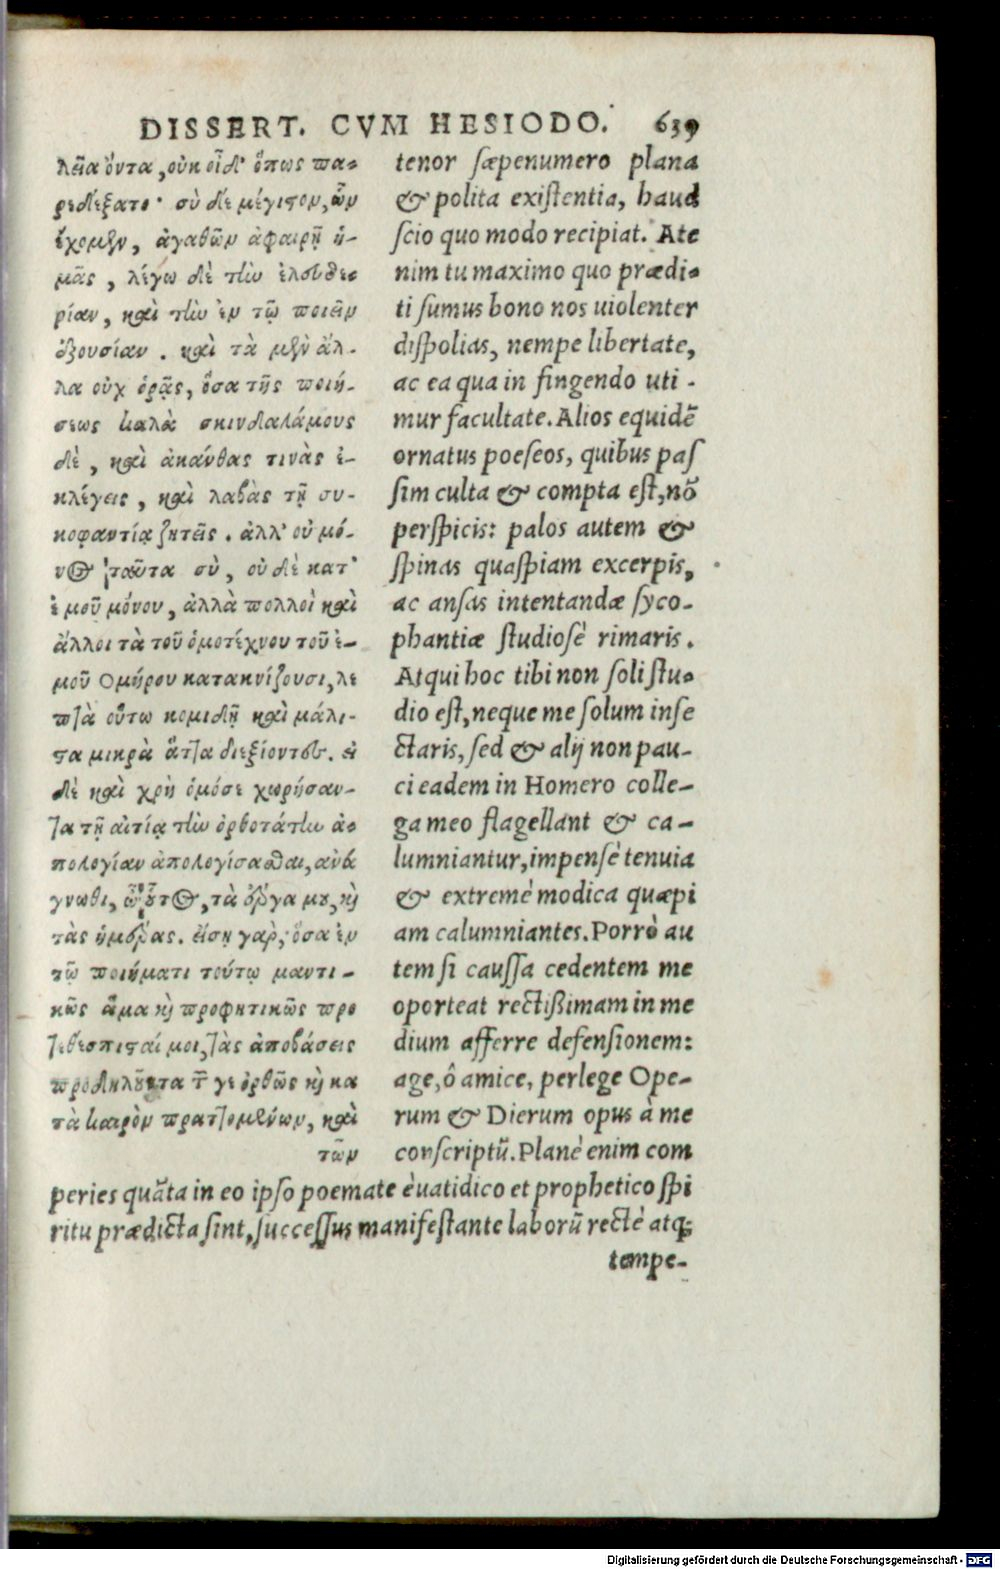 DISSERT. CVM HESIODO. 639
λεῖα ὄντα, οὐκ οἶδ' ὅπως πα-
ρεδέξατο· σὺ δὲ μέγιστον, ὧν
ἔχομεν, ἀγαθῶν ἀφαιρῇ ἡ-
μᾶς, λέγω δὲ τὴν ἐλευθε-
ρίαν, καὶ τὴν ἐν τῷ ποιεῖν
ἐξουσίαν. καὶ τὰ μὲν ἄλ-
λα οὐχ ὁρᾷς, ὅσα τῆς ποιή-
σεως καλὰ σκινδαλάμους
δὲ, καὶ ἀκάνθας τινὰς ἐ-
κλέγεις, καὶ λαβὰς τῇ συ-
κοφαντίᾳ ζητεῖς. ἀλλ' οὐ μό-
νος ταῦτα σὺ, οὐδὲ κατ'
ἐμοῦ μόνον, ἀλλὰ πολλοὶ καὶ
ἄλλοι τὰ τοῦ ὁμοτέχνου τοῦ ἐ-
μοῦ Ομήρου κατακνίζουσι, λε
πτὰ οὕτω κομιδῇ καὶ μάλι-
στα μικρὰ ἄττα διεξίοντες. εἰ
δὲ καὶ χρὴ ὁμόσε χωρήσαν-
τα τῇ αἰτίᾳ τὴν ὀρθοτάτην ἀ-
πολογίαν ἀπολογίσασθαι, ἀνά
γνωθι, ὦ οὗτος, τὰ ἔργα μου, καὶ
τὰς ἡμέρας. εἴση γὰρ, ὅσα ἐν
τῷ ποιήματι τούτῳ μαντι-
κῶς ἅμα καὶ προφητικῶς προ
τεθέσπισταί μοι, τὰς ἀποβάσεις
προδηλοῦντα τῶν γε ὀρθῶς καὶ κα
τὰ καιρὸν πραττομένων, καὶ
τῶν
tenor sæpenumero plana
& polita existentia, haud
scio quo modo recipiat. Ate
nim tu maximo quo prædi-
ti sumus bono nos uiolenter
dispolias, nempe libertate,
ac ea qua in fingendo uti-
mur facultate. Alios equidẽ
ornatus poeseos, quibus pas
sim culta & compta est, nõ
perspicis: palos autem &
spinas quaspiam excerpis,
ac ansas intentandæ syco-
phantiæ studiosè rimaris.
Atqui hoc tibi non soli stu-
dio est, neque me solum inse
ctaris, sed & alij non pau-
ci eadem in Homero colle-
ga meo flagellant & ca-
lumniantur, impensè tenuia
& extremè modica quæpi
am calumniantes. Porrò au
tem si caussa cedentem me
oporteat rectißimam in me
dium afferre defensionem:
age, ô amice, perlege Ope-
rum & Dierum opus à me
conscriptũ. Planè enim com
peries quãta in eo ipso poemate è uatidico et prophetico spi
ritu prædicta sint, successus manifestante laborũ rectè atq;
tempe-
Digitalisierung gefördert durch die Deutsche Forschungsgemeinschaft - DFG